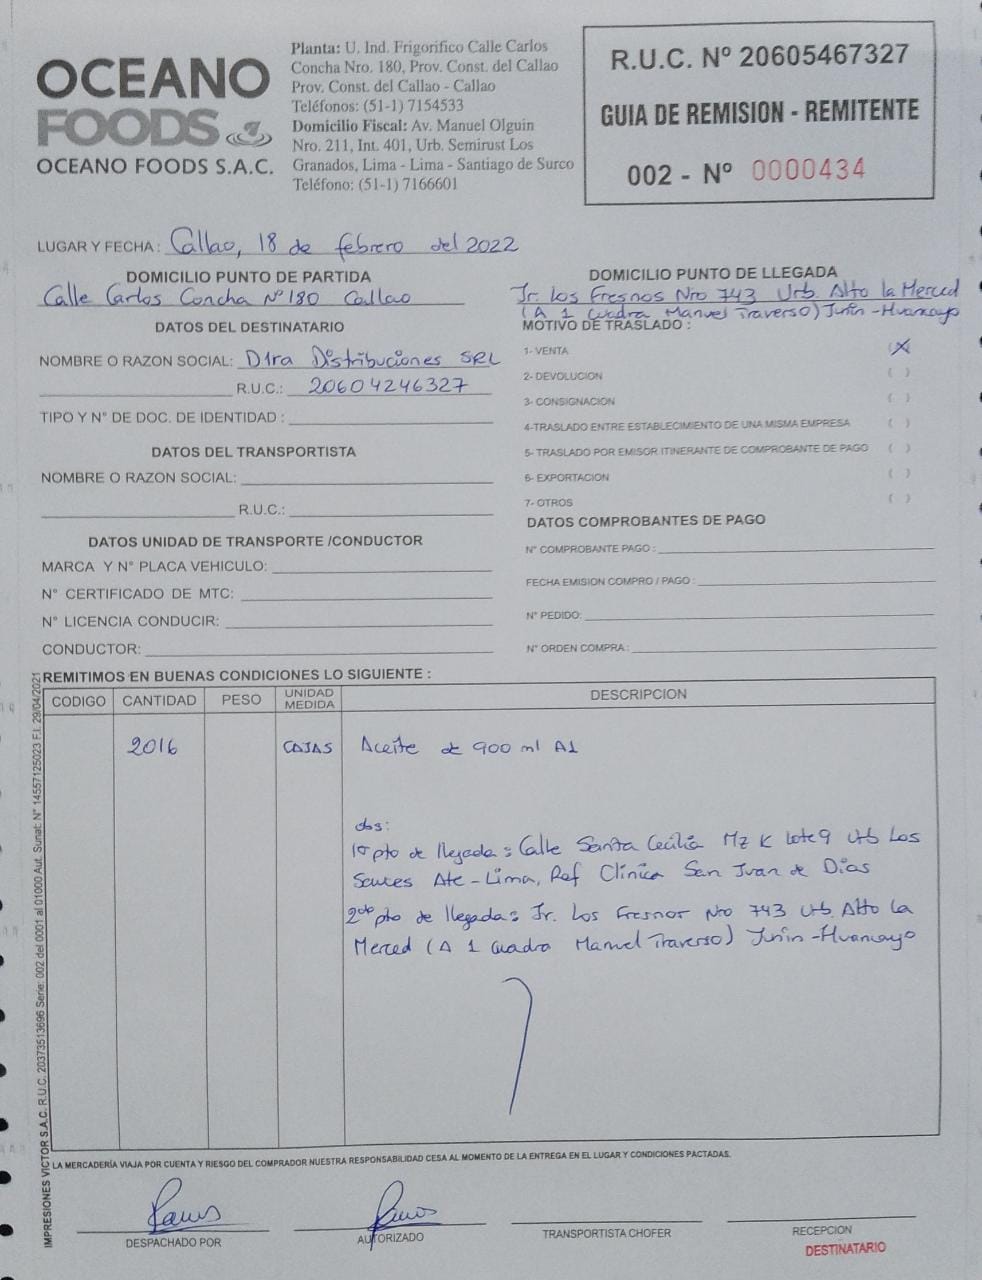 OCEANO
FOODS
OCEANO FOODS S.A.C.
Planta: U. Ind. Frigorifico Calle Carlos
Concha Nro. 180, Prov. Const. del Callao
Prov. Const. del Callao - Callao
Teléfonos: (51-1) 7154533
Domicilio Fiscal: Av. Manuel Olguin
Nro. 211, Int. 401, Urb. Semirust Los
Granados, Lima - Lima - Santiago de Surco
Teléfono: (51-1) 7166601
R.U.C. Nº 20605467327
GUIA DE REMISION - REMITENTE
002 - Nº 0000434
LUGAR Y FECHA: Callao, 18 de febrero del 2022
DOMICILIO PUNTO DE PARTIDA
Calle Carlos Concha Nº 180 Callao
DOMICILIO PUNTO DE LLEGADA
Jr. Los Fresnos Nro 743 Urb. Alto la Merced
(A 1 Cuadra Manuel Traverso) Junín - Huancayo
DATOS DEL DESTINATARIO
NOMBRE O RAZON SOCIAL: D1ra Distribuciones SRL
R.U.C.: 20604246327
TIPO Y N° DE DOC. DE IDENTIDAD :
DATOS DEL TRANSPORTISTA
NOMBRE O RAZON SOCIAL:
R.U.C.:
DATOS UNIDAD DE TRANSPORTE /CONDUCTOR
MARCA Y N° PLACA VEHICULO:
N° CERTIFICADO DE MTC:
N° LICENCIA CONDUCIR:
CONDUCTOR:
MOTIVO DE TRASLADO :
1- VENTA (X)
2- DEVOLUCION ( )
3- CONSIGNACION ( )
4-TRASLADO ENTRE ESTABLECIMIENTO DE UNA MISMA EMPRESA ( )
5- TRASLADO POR EMISOR ITINERANTE DE COMPROBANTE DE PAGO ( )
6- EXPORTACION ( )
7- OTROS ( )
DATOS COMPROBANTES DE PAGO
N° COMPROBANTE PAGO :
FECHA EMISION COMPRO / PAGO :
N° PEDIDO:
N° ORDEN COMPRA :
REMITIMOS EN BUENAS CONDICIONES LO SIGUIENTE :
CODIGO CANTIDAD PESO UNIDAD MEDIDA DESCRIPCION
2016 CAJAS Aceite de 900 ml A1
obs:
1er pto de llegada : Calle Santa Cecilia Mz K Lote 9 Urb Los
Sauces Ate - Lima, Ref Clínica San Juan de Dias
2do pto de llegada : Jr. Los Fresnor Nro 743 Urb. Alto la
Merced (A 1 Cuadra Manuel Traverso) Junín - Huancayo
IMPRESIONES VICTOR S.A.C. R.U.C. 20373513696 Serie: 002 del 0001 al 01000 Aut. Sunat: N° 14557125023 F.I. 29/04/2021
LA MERCADERÍA VIAJA POR CUENTA Y RIESGO DEL COMPRADOR NUESTRA RESPONSABILIDAD CESA AL MOMENTO DE LA ENTREGA EN EL LUGAR Y CONDICIONES PACTADAS.
DESPACHADO POR
AUTORIZADO
TRANSPORTISTA CHOFER
RECEPCION
DESTINATARIO